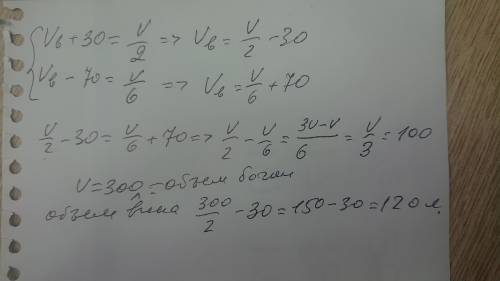 Vв + 30 = V/2 => Vв = V/2 - 30
Vв - 70 = V/6 => Vв = V/6 + 70
V/2 - 30 = V/6 + 70 => V/2 - V/6 = 3V-V/6 = V/3 = 100
V = 300 - объем бочки
объем вина 300/2 - 30 = 150 - 30 = 120 л.